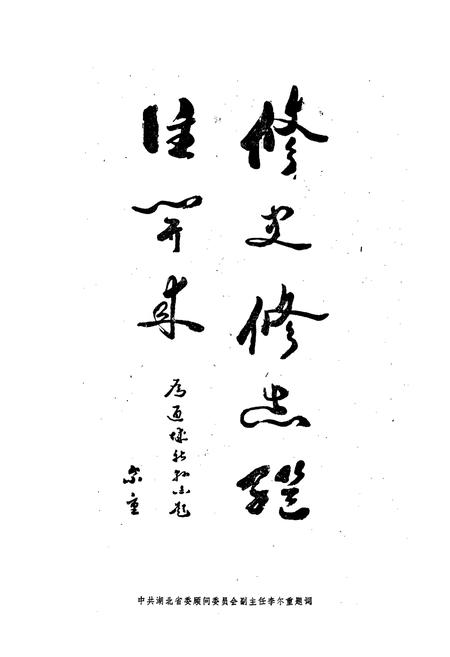 修史修志繼
往開来
為通城新縣志題
尔重
中共湖北省委顾问委员会副主任李尔重题词